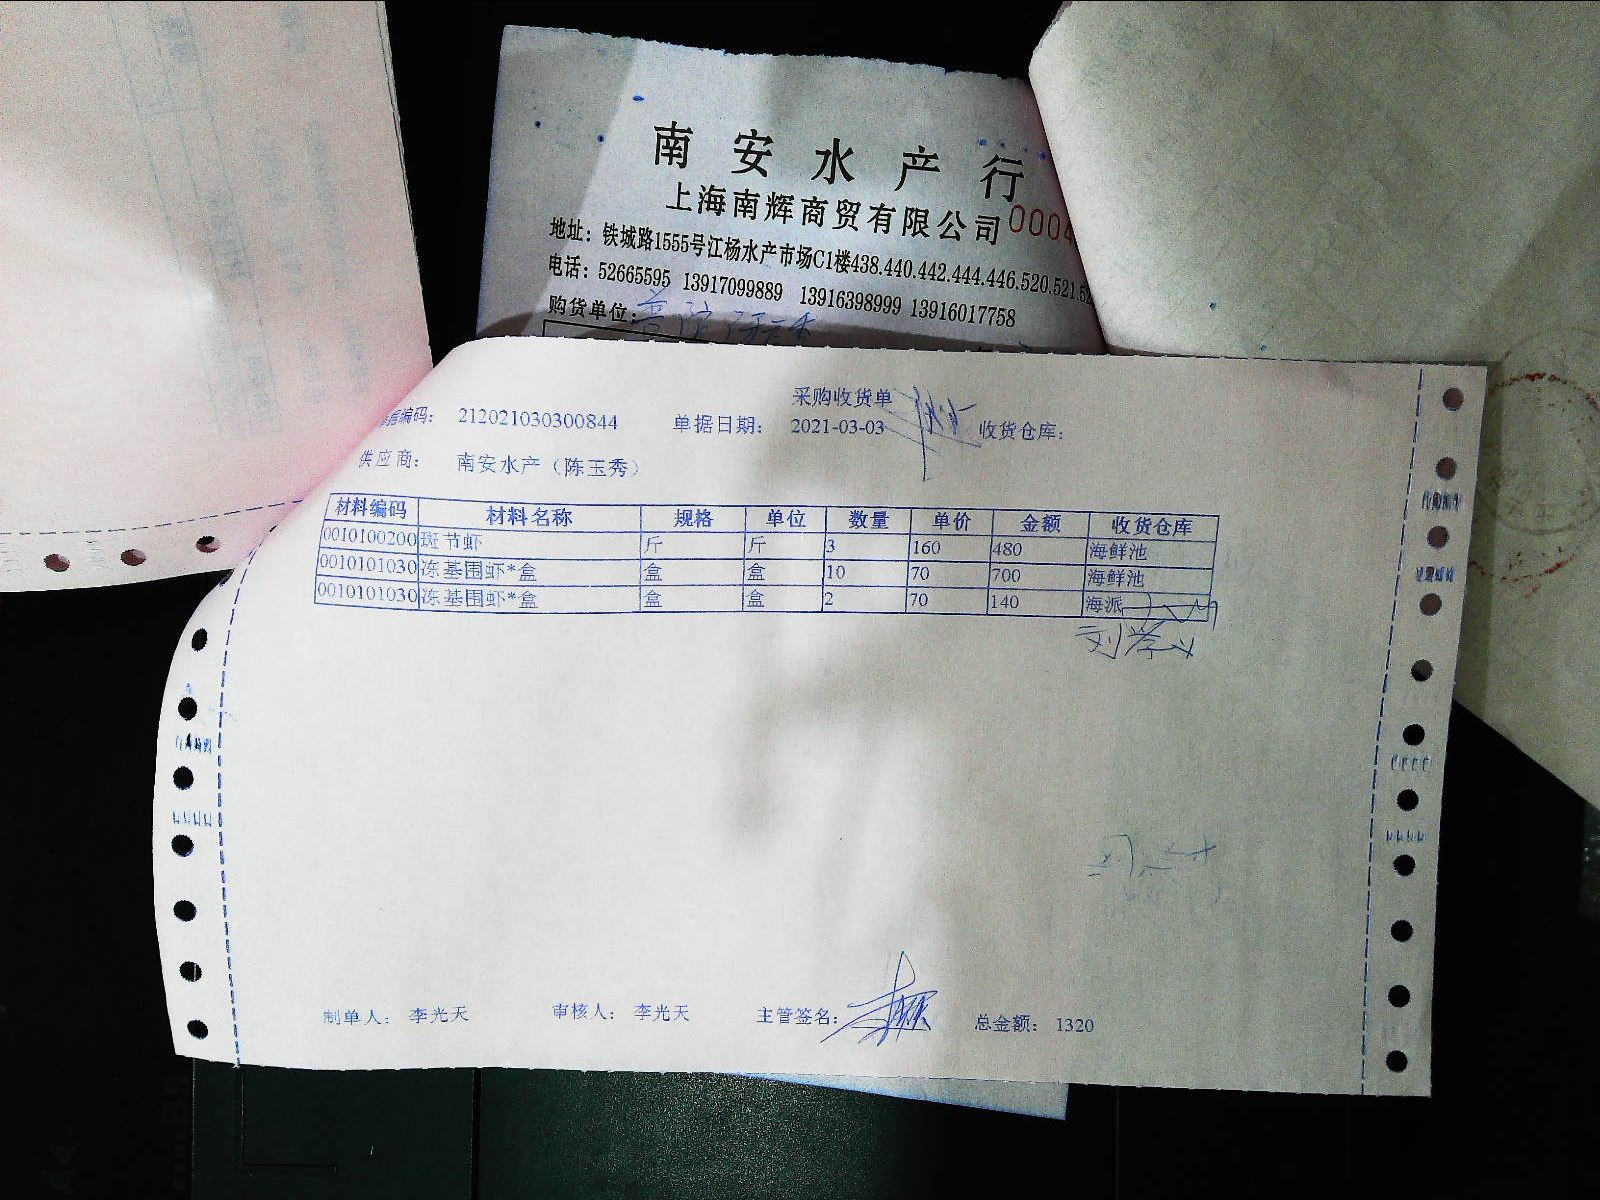 南安水产行
上海南辉商贸有限公司 000
地址：铁城路1555号江杨水产市场C1楼438.440.442.444.446.520.521.52
电话：52665595 13917099889 13916398999 13916017758
购货单位：
采购收货单
据编码： 212021030300844 单据日期： 2021-03-03 收货仓库：
供应商： 南安水产（陈玉秀）
材料编码 材料名称 规格 单位 数量 单价 金额 收货仓库
0010100200 斑节虾 斤 斤 3 160 480 海鲜池
0010101030 冻基围虾*盒 盒 盒 10 70 700 海鲜池
0010101030 冻基围虾*盒 盒 盒 2 70 140 海派
刘学义
制单人： 李光天 审核人： 李光天 主管签名： 总金额： 1320